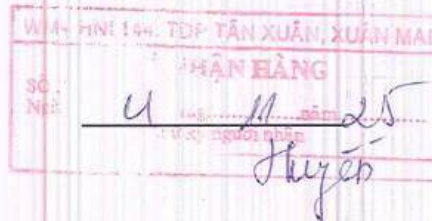 WM+ HNI 144, TDP TÂN XUÂN, XUÂN MAI
NHẬN HÀNG
SỐ :
Ngày 4 tháng 11 năm 25
Chữ ký người nhận
Huyền